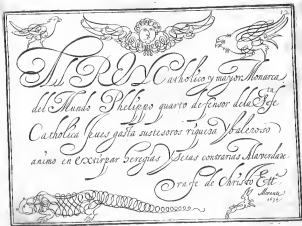 Al REY Catholico y mayor Monarca
del Mundo Philippo quarto defensor dela Sta Fe
Catholica pues gasta sus tesoros riqueza y baleroso
animo en extirpar heregias y setas contrarias Ala verdade
ra fe de Christo Etta
Morante